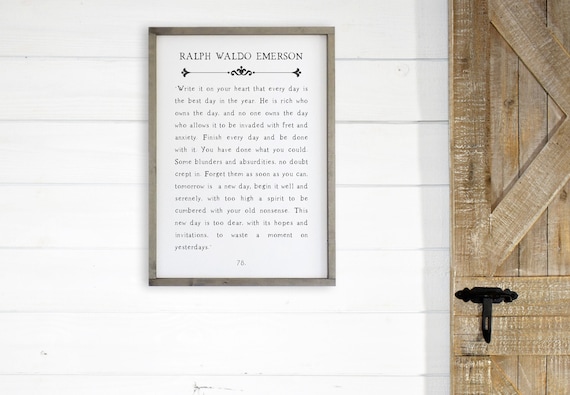 RALPH WALDO EMERSON
"Write it on your heart that every day is
the best day in the year. He is rich who
owns the day, and no one owns the day
who allows it to be invaded with fret and
anxiety. Finish every day and be done
with it. You have done what you could.
Some blunders and absurdities, no doubt
crept in. Forget them as soon as you can,
tomorrow is a new day; begin it well and
serenely, with too high a spirit to be
cumbered with your old nonsense. This
new day is too dear, with its hopes and
invitations, to waste a moment on
yesterdays."
76.